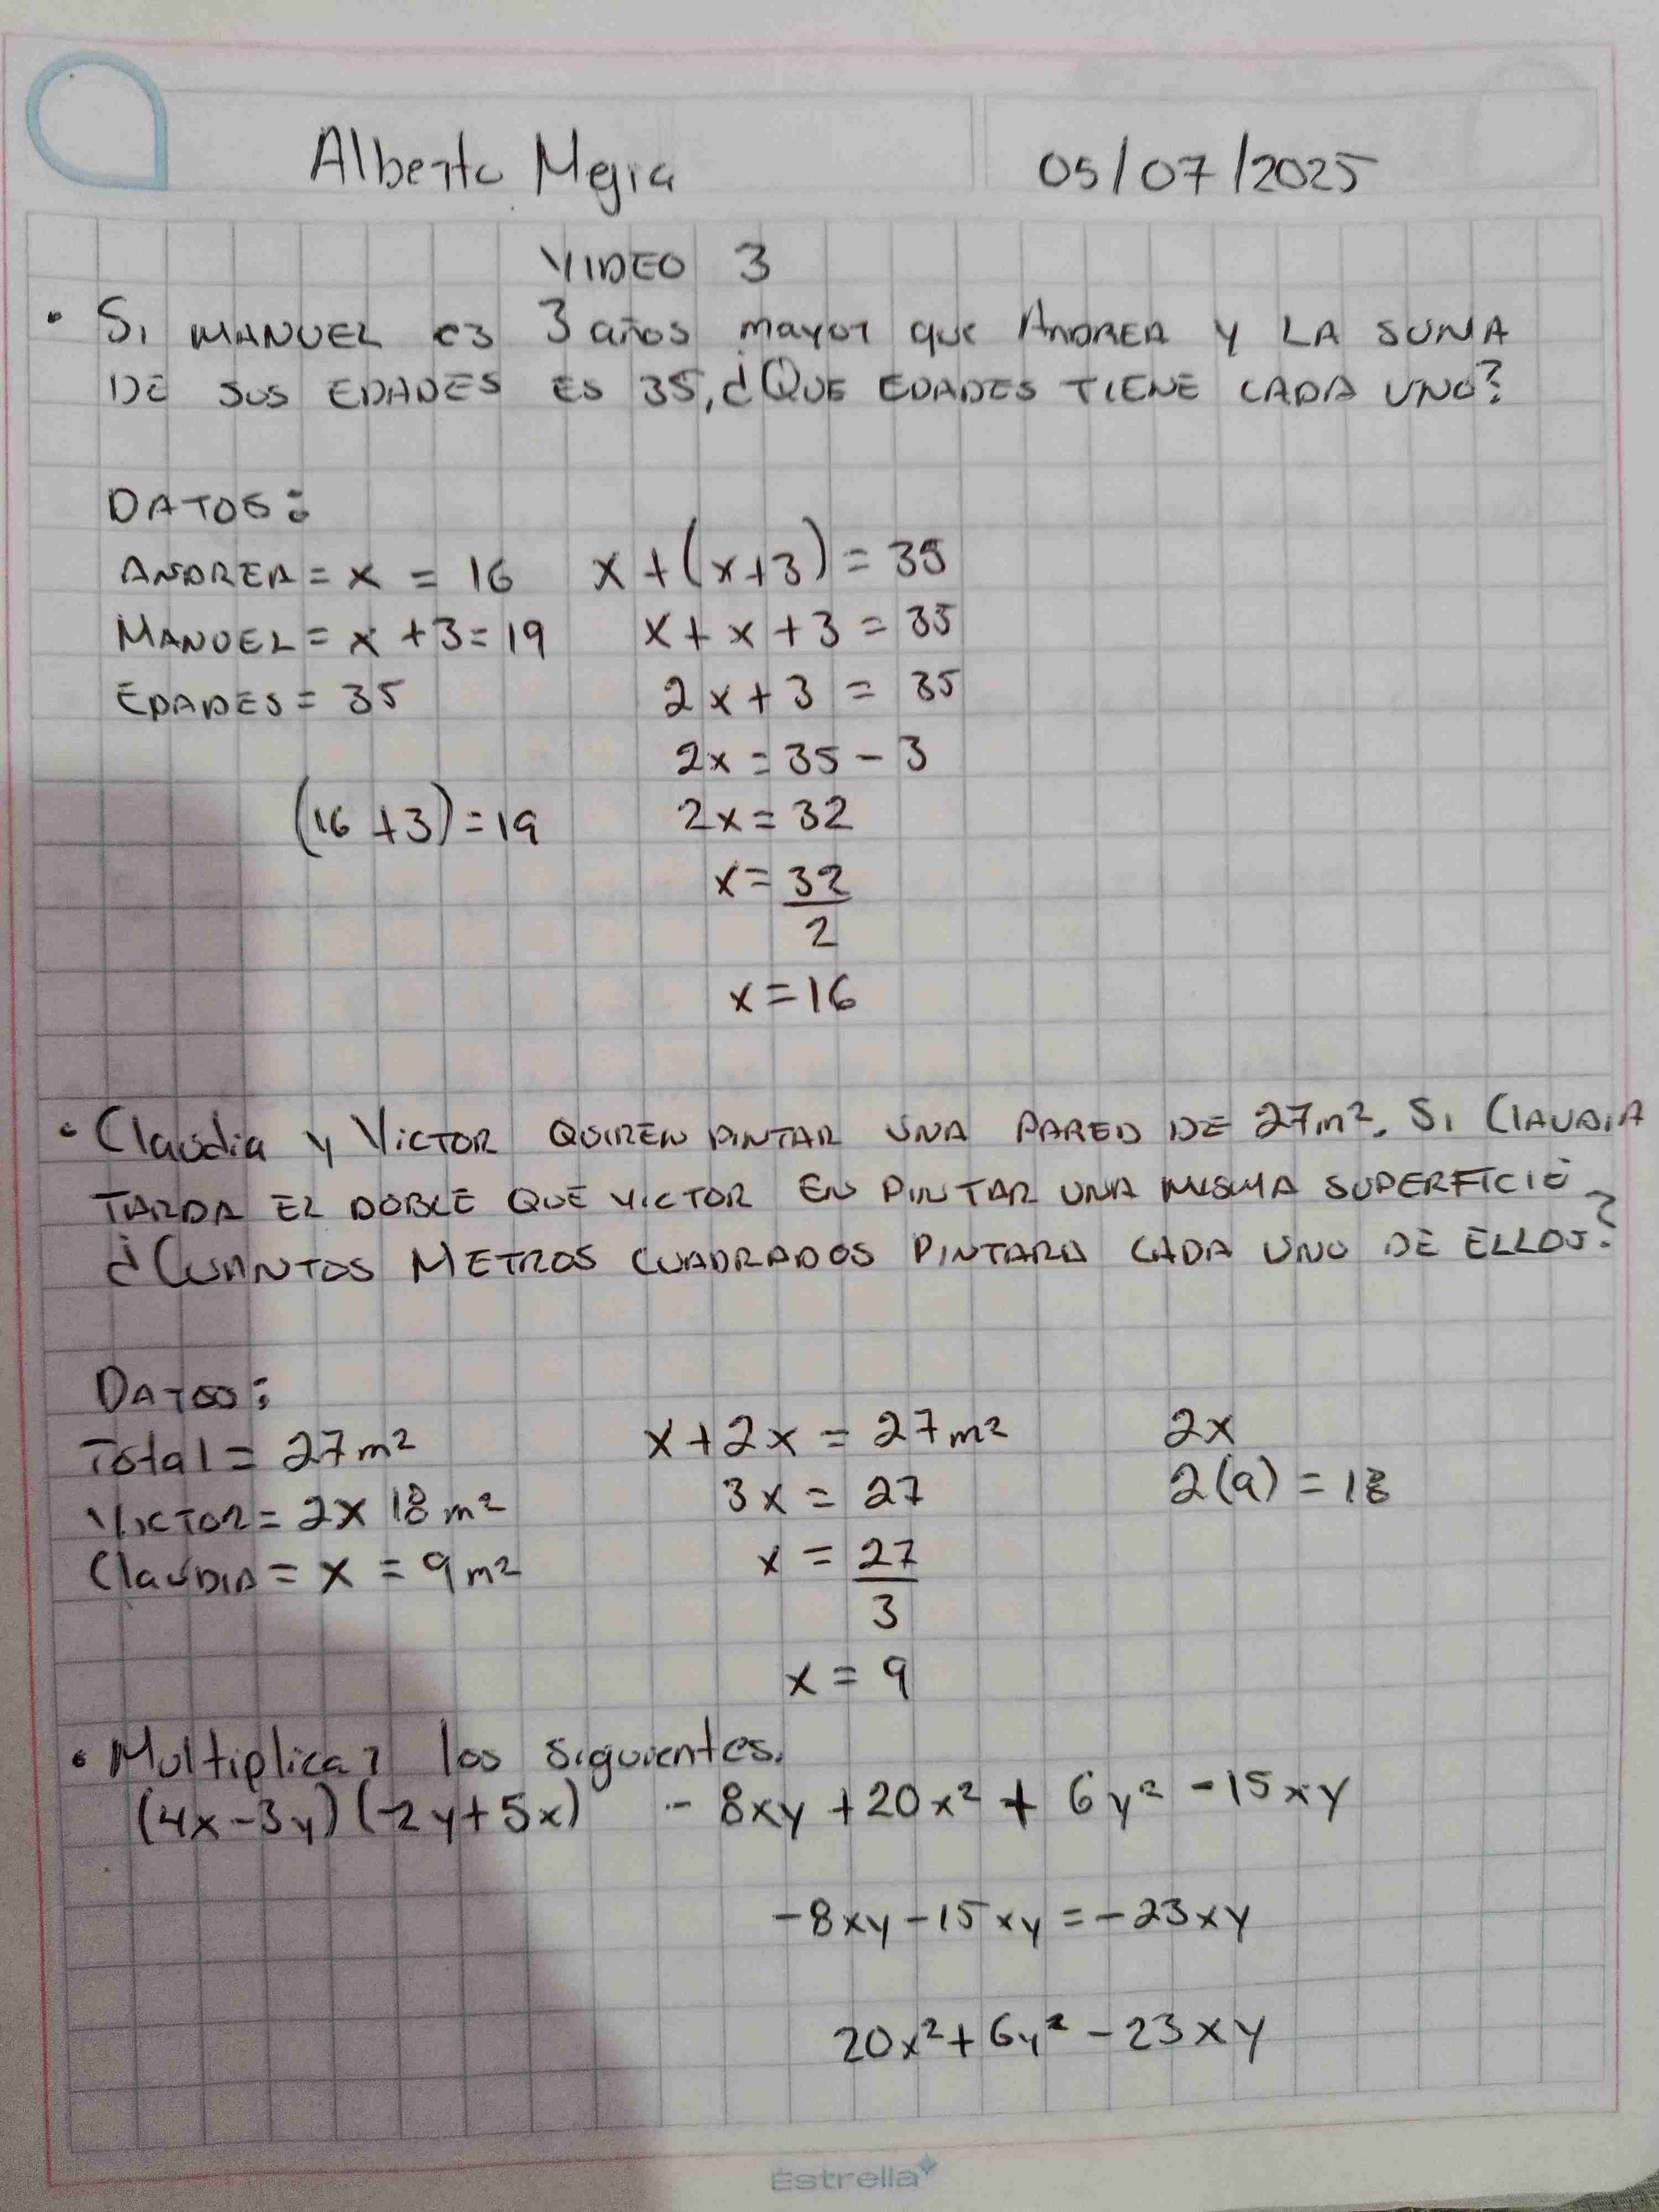 Alberto Mejia 05/07/2025
VIDEO 3
• Si MANUEL es 3 años mayor que ANDREA y LA SUMA
DE SUS EDADES ES 35, ¿QUE EDADES TIENE CADA UNO?
DATOS:
ANDREA = x = 16 x + (x+3) = 35
MANUEL = x + 3 = 19 x + x + 3 = 35
EDADES = 35 2x + 3 = 35
2x = 35 - 3
(16 + 3) = 19 2x = 32
x = 32
2
x = 16
• Claudia y VICTOR QUIREN PINTAR UNA PARED DE 27m². Si CLAUDIA
TARDA EL DOBLE QUE VICTOR EN PINTAR UNA MISMA SUPERFICIE
¿CUANTOS METROS CUADRADOS PINTARA CADA UNO DE ELLOS?
DATOS:
Total = 27m² x + 2x = 27m² 2x
VICTOR = 2x 18m² 3x = 27 2(9) = 18
ClauDIA = x = 9m² x = 27
3
x = 9
• Multiplicar los siguientes.
(4x-3y)(-2y+5x) - 8xy + 20x² + 6y² - 15xy
-8xy - 15xy = -23xy
20x² + 6y² - 23xy
Estrella